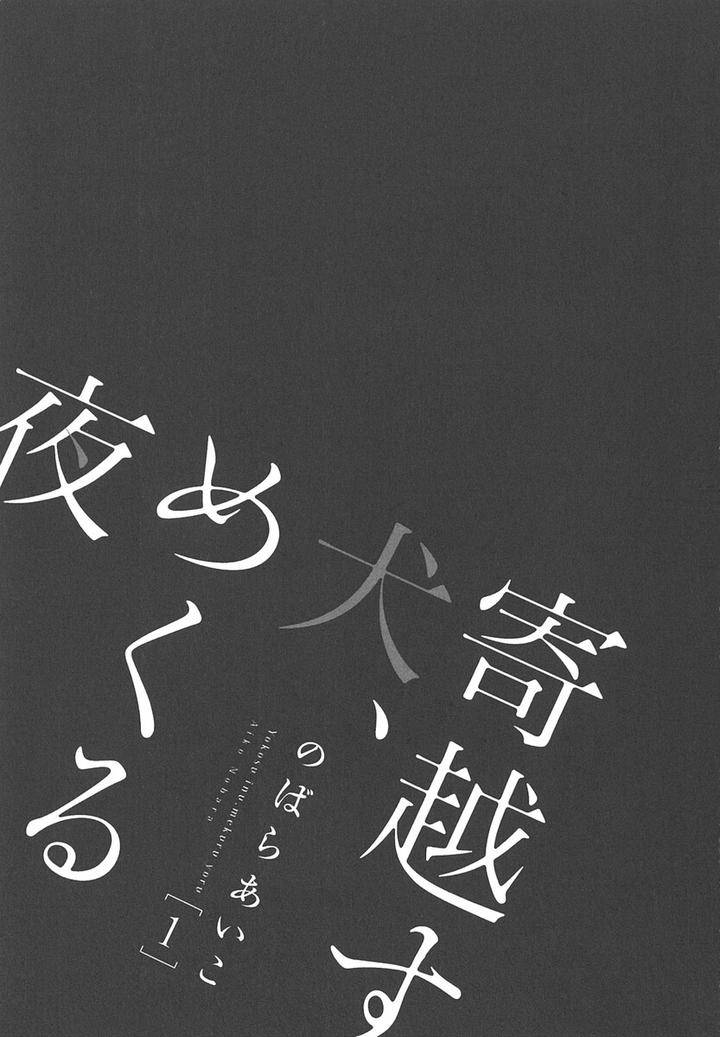 寄越す
犬、
めくる
夜
のばらあいこ
Yokosu inu, mekuru yoru
Aiko Nobara
[1]